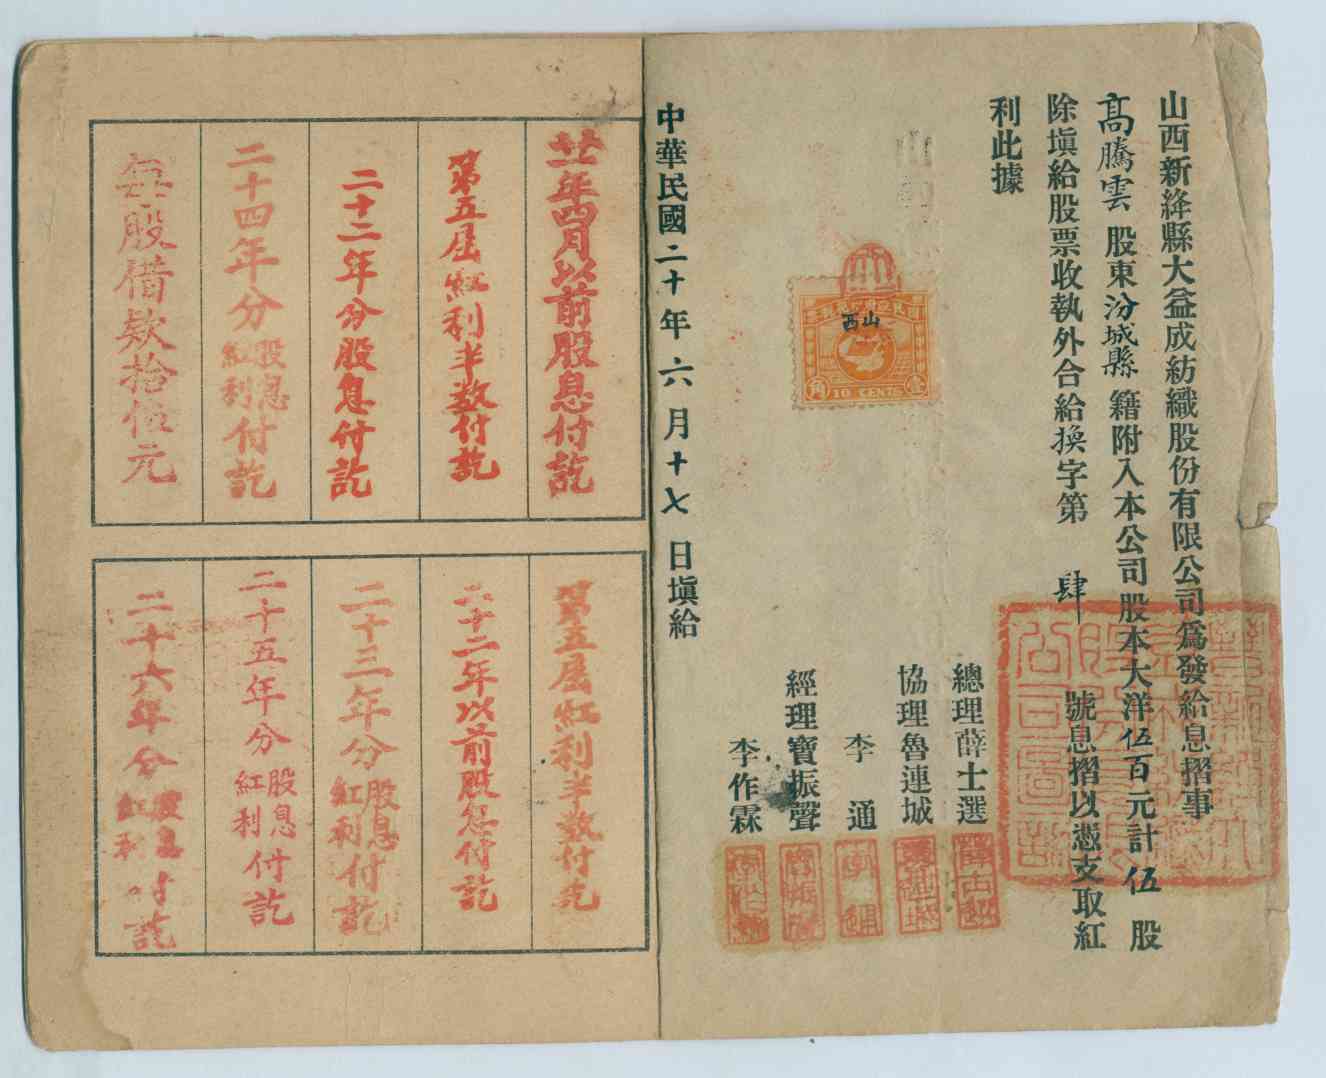 山西新絳縣大益成紡織股份有限公司為發給息摺事
高騰雲 股東汾城縣 籍附入本公司股本大洋伍百元計伍股
除塡給股票收執外合給換字第 肆 號息摺以憑支取紅
利此據
總理薛士選
協理魯連城
李 通
經理寶振聲
李作霖
西山
角
壹
10 CENTS
中華民國二十年六月十七日塡給
廿一年四月以前股息付訖
第五屆紅利半数付訖
二十二年分股息付訖
二十四年分股息紅利付訖
每股借欵拾伍元
第五屆紅利半数付訖
二十二年以前股息付訖
二十三年分股息紅利付訖
二十五年分股息紅利付訖
二十六年分股息紅利付訖